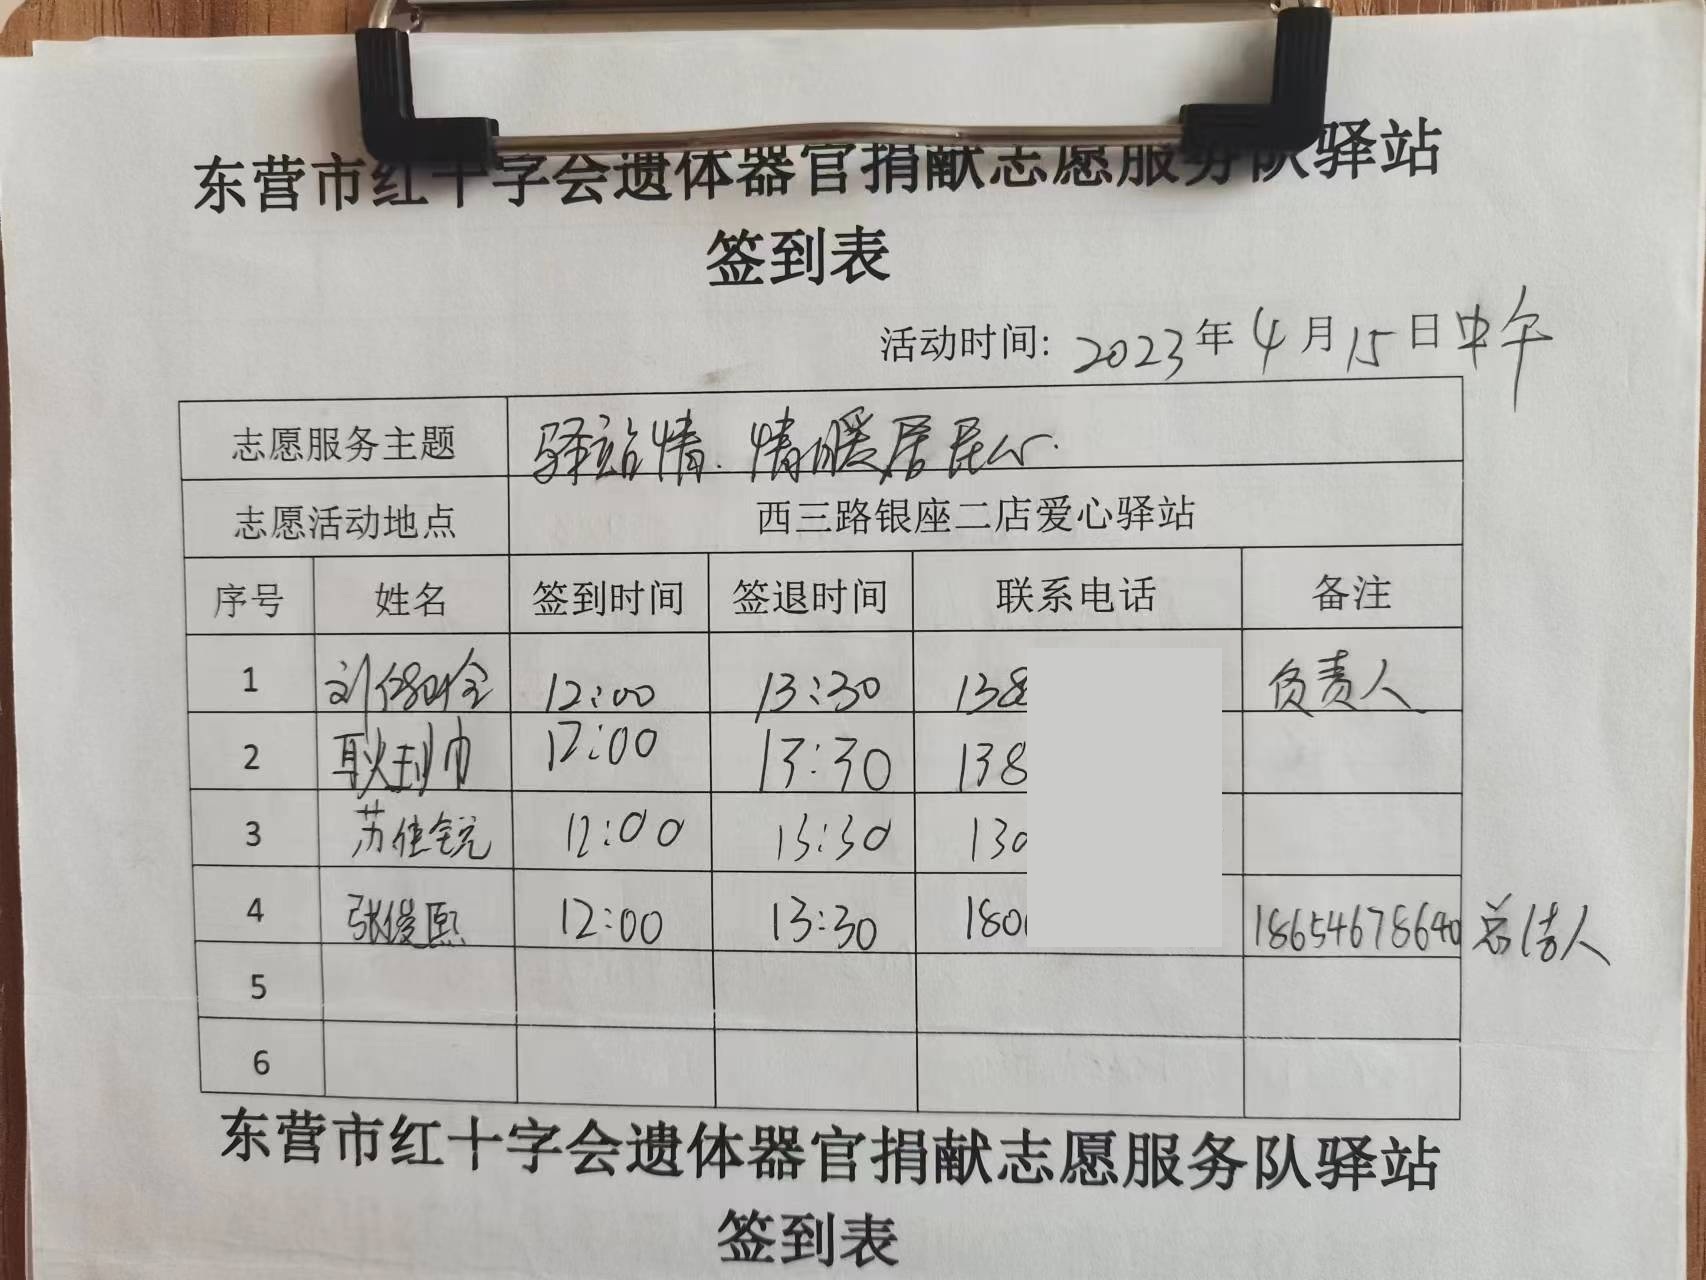 东营市红十字会遗体器官捐献志愿服务队驿站
签到表
活动时间: 2023年4月15日中午
志愿服务主题 驿站情.情暖居民心.
志愿活动地点 西三路银座二店爱心驿站
序号 姓名 签到时间 签退时间 联系电话 备注
1 12:00 13:30 138 负责人
2 12:00 13:30 138
3 苏佳锐 12:00 13:30 130
4 张俊熙 12:00 13:30 180 18654678640 总结人
5
6
东营市红十字会遗体器官捐献志愿服务队驿站
签到表